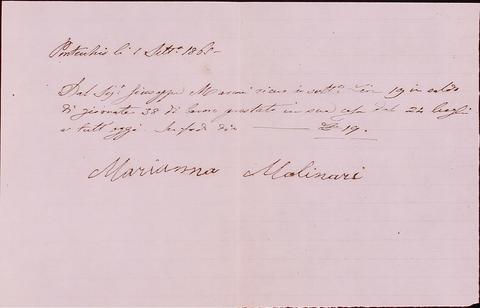 Pontecchio li 1 Sett.e 1865
Dal Sig.r Giuseppe Marmi ricevo in sott.a Lire 19 in saldo
di giornate 38 di lavoro prestato in sua casa dal 24 luglio
a tutt'oggi. In fede dico £ 19.
Marianna Molinari